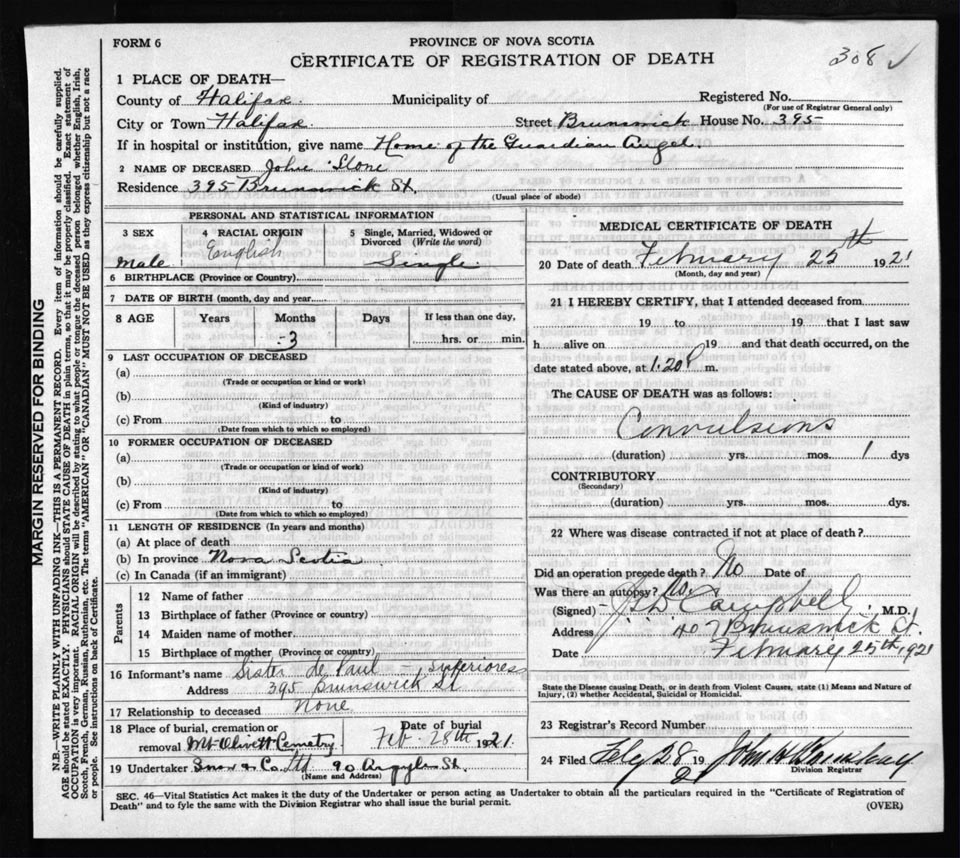 308 ✓
FORM 6
PROVINCE OF NOVA SCOTIA
CERTIFICATE OF REGISTRATION OF DEATH
MARGIN RESERVED FOR BINDING
N.B.—WRITE PLAINLY WITH UNFADING INK—THIS IS A PERMANENT RECORD. Every item of information should be carefully supplied.
AGE should be stated EXACTLY. PHYSICIANS should STATE CAUSE OF DEATH in plain terms, so that it may be properly classified. Exact statement of
OCCUPATION is very important. RACIAL ORIGIN will be described by stating to what people or tongue the deceased person belonged whether English, Irish,
Scotch, French, German, Russian, Ruthenian, etc. The terms "AMERICAN" OR "CANADIAN" MUST NOT BE USED as they express citizenship but not a race
or people. See instructions on back of Certificate.
1 PLACE OF DEATH—
County of Halifax Municipality of Registered No.
(For use of Registrar General only)
City or Town Halifax Street Brunswick House No. 395
If in hospital or institution, give name Home of the Guardian Angel.
2 NAME OF DECEASED John Slone
Residence 395 Brunswick St.
(Usual place of abode)
PERSONAL AND STATISTICAL INFORMATION
3 SEX 4 RACIAL ORIGIN 5 Single, Married, Widowed or
Divorced (Write the word)
Male English Single
6 BIRTHPLACE (Province or Country)
7 DATE OF BIRTH (month, day and year)
8 AGE Years Months Days If less than one day,
3 hrs. or min.
9 LAST OCCUPATION OF DECEASED
(a)
(Trade or occupation or kind or work)
(b)
(Kind of industry)
(c) From to
(Date from which to which so employed)
10 FORMER OCCUPATION OF DECEASED
(a)
(Trade or occupation or kind of work)
(b)
(Kind of industry)
(c) From to
(Date from which to which so employed)
11 LENGTH OF RESIDENCE (In years and months)
(a) At place of death
(b) In province Nova Scotia
(c) In Canada (if an immigrant)
Parents
12 Name of father
13 Birthplace of father (Province or country)
14 Maiden name of mother
15 Birthplace of mother (Province or country)
16 Informant's name Sister de Paul — Superioress
Address 395 Brunswick St
17 Relationship to deceased None
18 Place of burial, cremation or Date of burial
removal Mt Olivett Cemetry Feb. 28th 1921.
19 Undertaker Snow & Co. Ltd 90 Argyle St.
(Name and Address)
MEDICAL CERTIFICATE OF DEATH
20 Date of death February 25th 1921
(Month, day and year)
21 I HEREBY CERTIFY, that I attended deceased from
19 to 19 that I last saw
h alive on 19 and that death occurred, on the
date stated above, at 1.20 P m.
The CAUSE OF DEATH was as follows:
Convulsions
(duration) yrs. mos. 1 dys
CONTRIBUTORY
(Secondary)
(duration) yrs. mos. dys.
22 Where was disease contracted if not at place of death?
Did an operation precede death? No Date of
Was there an autopsy? No.
(Signed) Campbell M.D.
Address 407 Brunswick St.
Date February 25th, 1921
State the Disease causing Death, or in death from Violent Causes, state (1) Means and Nature of
Injury, (2) whether Accidental, Suicidal or Homicidal.
23 Registrar's Record Number
24 Filed Feby 28 192 John
Division Registrar
SEC. 46—Vital Statistics Act makes it the duty of the Undertaker or person acting as Undertaker to obtain all the particulars required in the "Certificate of Registration of
Death" and to fyle the same with the Division Registrar who shall issue the burial permit.
(OVER)